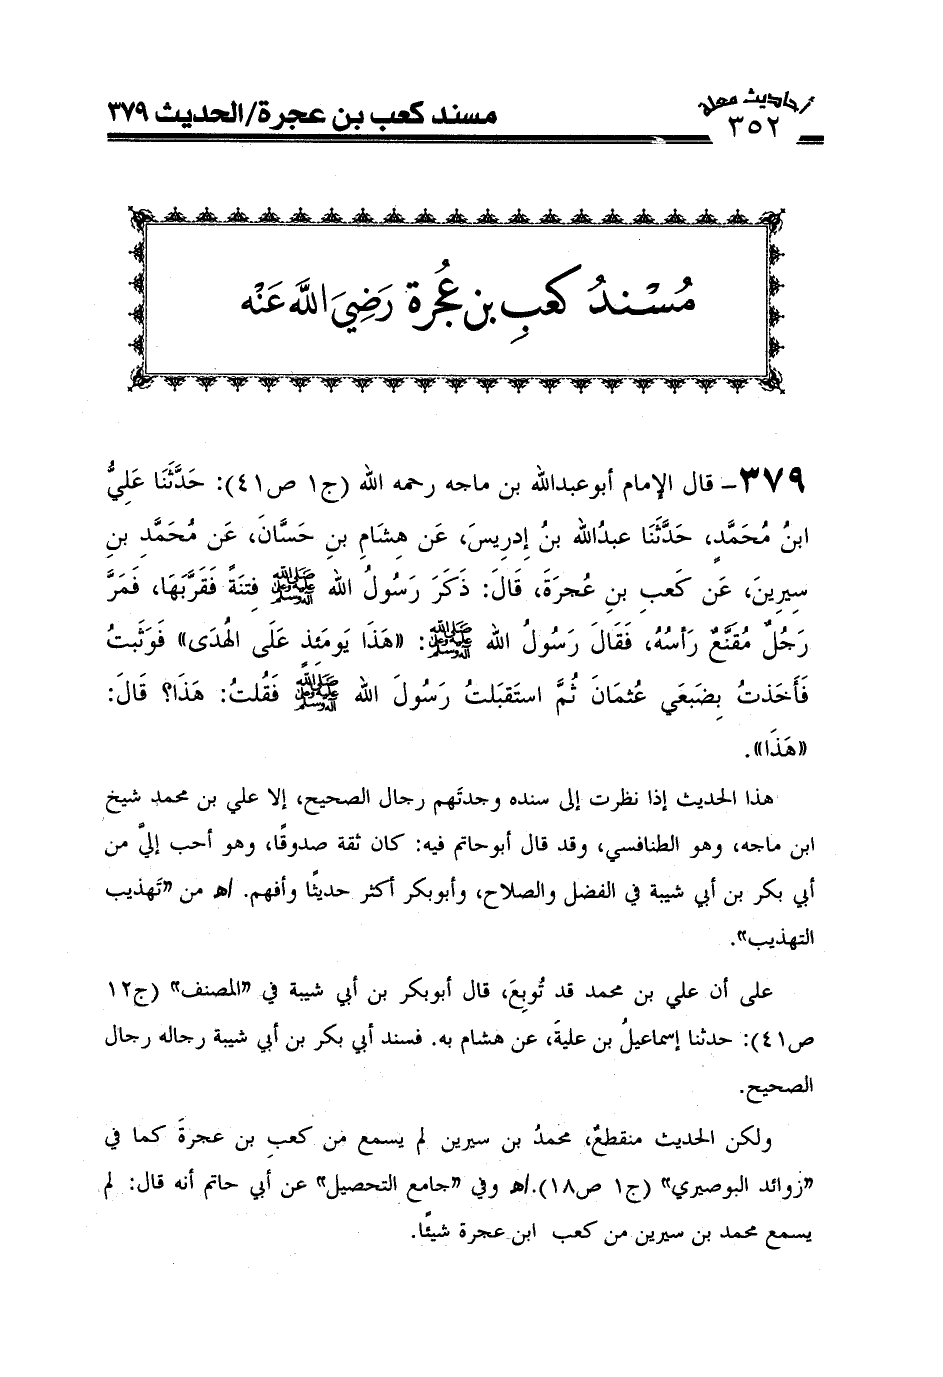 أحاديث معلة
٣٥٢
مسند كعب بن عجرة/الحديث ٣٧٩
مُسْندُ كعبِ بن عُجْرة رَضِيَ اللَّه عَنْه
٣٧٩- قال الإمام أبوعبدالله بن ماجه رحمه الله (ج١ ص٤١): حَدَّثَنَا عَلِيُّ
ابنُ مُحَمَّدٍ، حَدَّثَنَا عبدُالله بنُ إدرِيسَ، عَن هِشَامِ بنِ حَسَّانَ، عَن مُحَمَّدِ بنِ
سِيرِينَ، عَن كَعبِ بنِ عُجرَةَ، قَالَ: ذَكَرَ رَسُولُ الله ﷺ فِتنَةً فَقَرَّبَهَا، فَمَرَّ
رَجُلٌ مُقَنَّعٌ رَأسُهُ، فَقَالَ رَسُولُ الله ﷺ: «هَذَا يَومَئِذٍ عَلَى الهُدَى» فَوَثَبتُ
فَأَخَذتُ بِضَبعَي عُثمَانَ ثُمَّ استَقبَلتُ رَسُولَ الله ﷺ فَقُلتُ: هَذَا؟ قَالَ:
«هَذَا».
هذا الحديث إذا نظرت إلى سنده وجدتَهم رجال الصحيح، إلا علي بن محمد شيخ
ابن ماجه، وهو الطنافسي، وقد قال أبوحاتم فيه: كان ثقة صدوقًا، وهو أحب إليَّ من
أبي بكر بن أبي شيبة في الفضل والصلاح، وأبوبكر أكثر حديثًا وأفهم. اهـ من «تَهذيب
التهذيب».
على أن علي بن محمد قد تُوبِعَ، قال أبوبكر بن أبي شيبة في «المصنف» (ج١٢
ص٤١): حدثنا إسماعيلُ بن عليةَ، عن هشام به. فسند أبي بكر بن أبي شيبة رجاله رجال
الصحيح.
ولكن الحديث منقطعٌ، محمدُ بن سيرين لم يسمع من كعبِ بن عجرةَ كما في
«زوائد البوصيري» (ج١ ص١٨).اهـ وفي «جامع التحصيل» عن أبي حاتم أنه قال: لم
يسمع محمد بن سيرين من كعب ابن عجرة شيئًا.